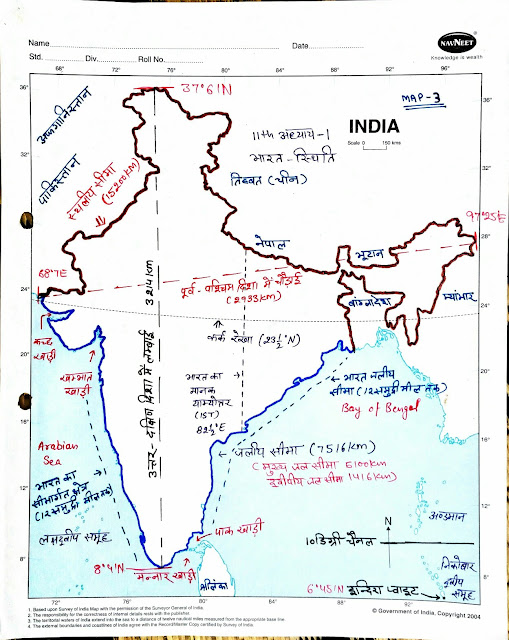 NAVNEET
Knowledge is wealth
Name
Date
Std.
Div.
Roll No.
68° 72° 76° 80° 84° 88° 92° 96°
36°
37°61N
MAP-3
36°
अफगानिस्तान
INDIA
Scale 0 150 kms
11th अध्याय-1
भारत-स्थिति
तिब्बत (चीन)
32°
32°
पाकिस्तान
स्थलीय सीमा
(15200KM)
97°25E
28°
28°
नेपाल
भूटान
68°7E
पूर्व-पश्चिम दिशा में चौड़ाई
(2933KM)
बांग्लादेश
म्यांमार
24°
24°
3214KM
उत्तर दक्षिण दिशा में लम्बाई
कर्क रेखा (23½°N)
कच्छ
खाड़ी
20°
20°
खम्भात
खाड़ी
भारत का
मानक
याम्योत्तर
(IST)
82½°E
भारत जलीय
सीमा (12 समुद्री मील तक)
Bay of Bengal
16°
16°
Arabian
Sea
जलीय सीमा (7516km)
(मुख्य जल सीमा 6100km
द्वीपीय जल सीमा 1416Km)
भारत का
(12 समुद्री मील तक)
12°
12°
लक्षद्वीप समूह
पाक खाड़ी
अण्डमान
N
10 डिग्री चैनल
8°
8°4'N
मन्नार खाड़ी
श्रीलंका
निकोबार
द्वीप
समूह
8°
6°45'N इन्दिरा प्वाइंट
68° 72° 76° 80° 84° 88° 92°
© Government of India, Copyright 2004
1. Based upon Survey of India Map with the permission of the Surveyor General of India.
2. The responsibility for the correctness of internal details rests with the publisher.
3. The territorial waters of India extend into the sea to a distance of twelve nautical miles measured from the appropriate base line
4. The external boundaries and coastlines of India agree with the Record/Master Copy certified by Survey of India